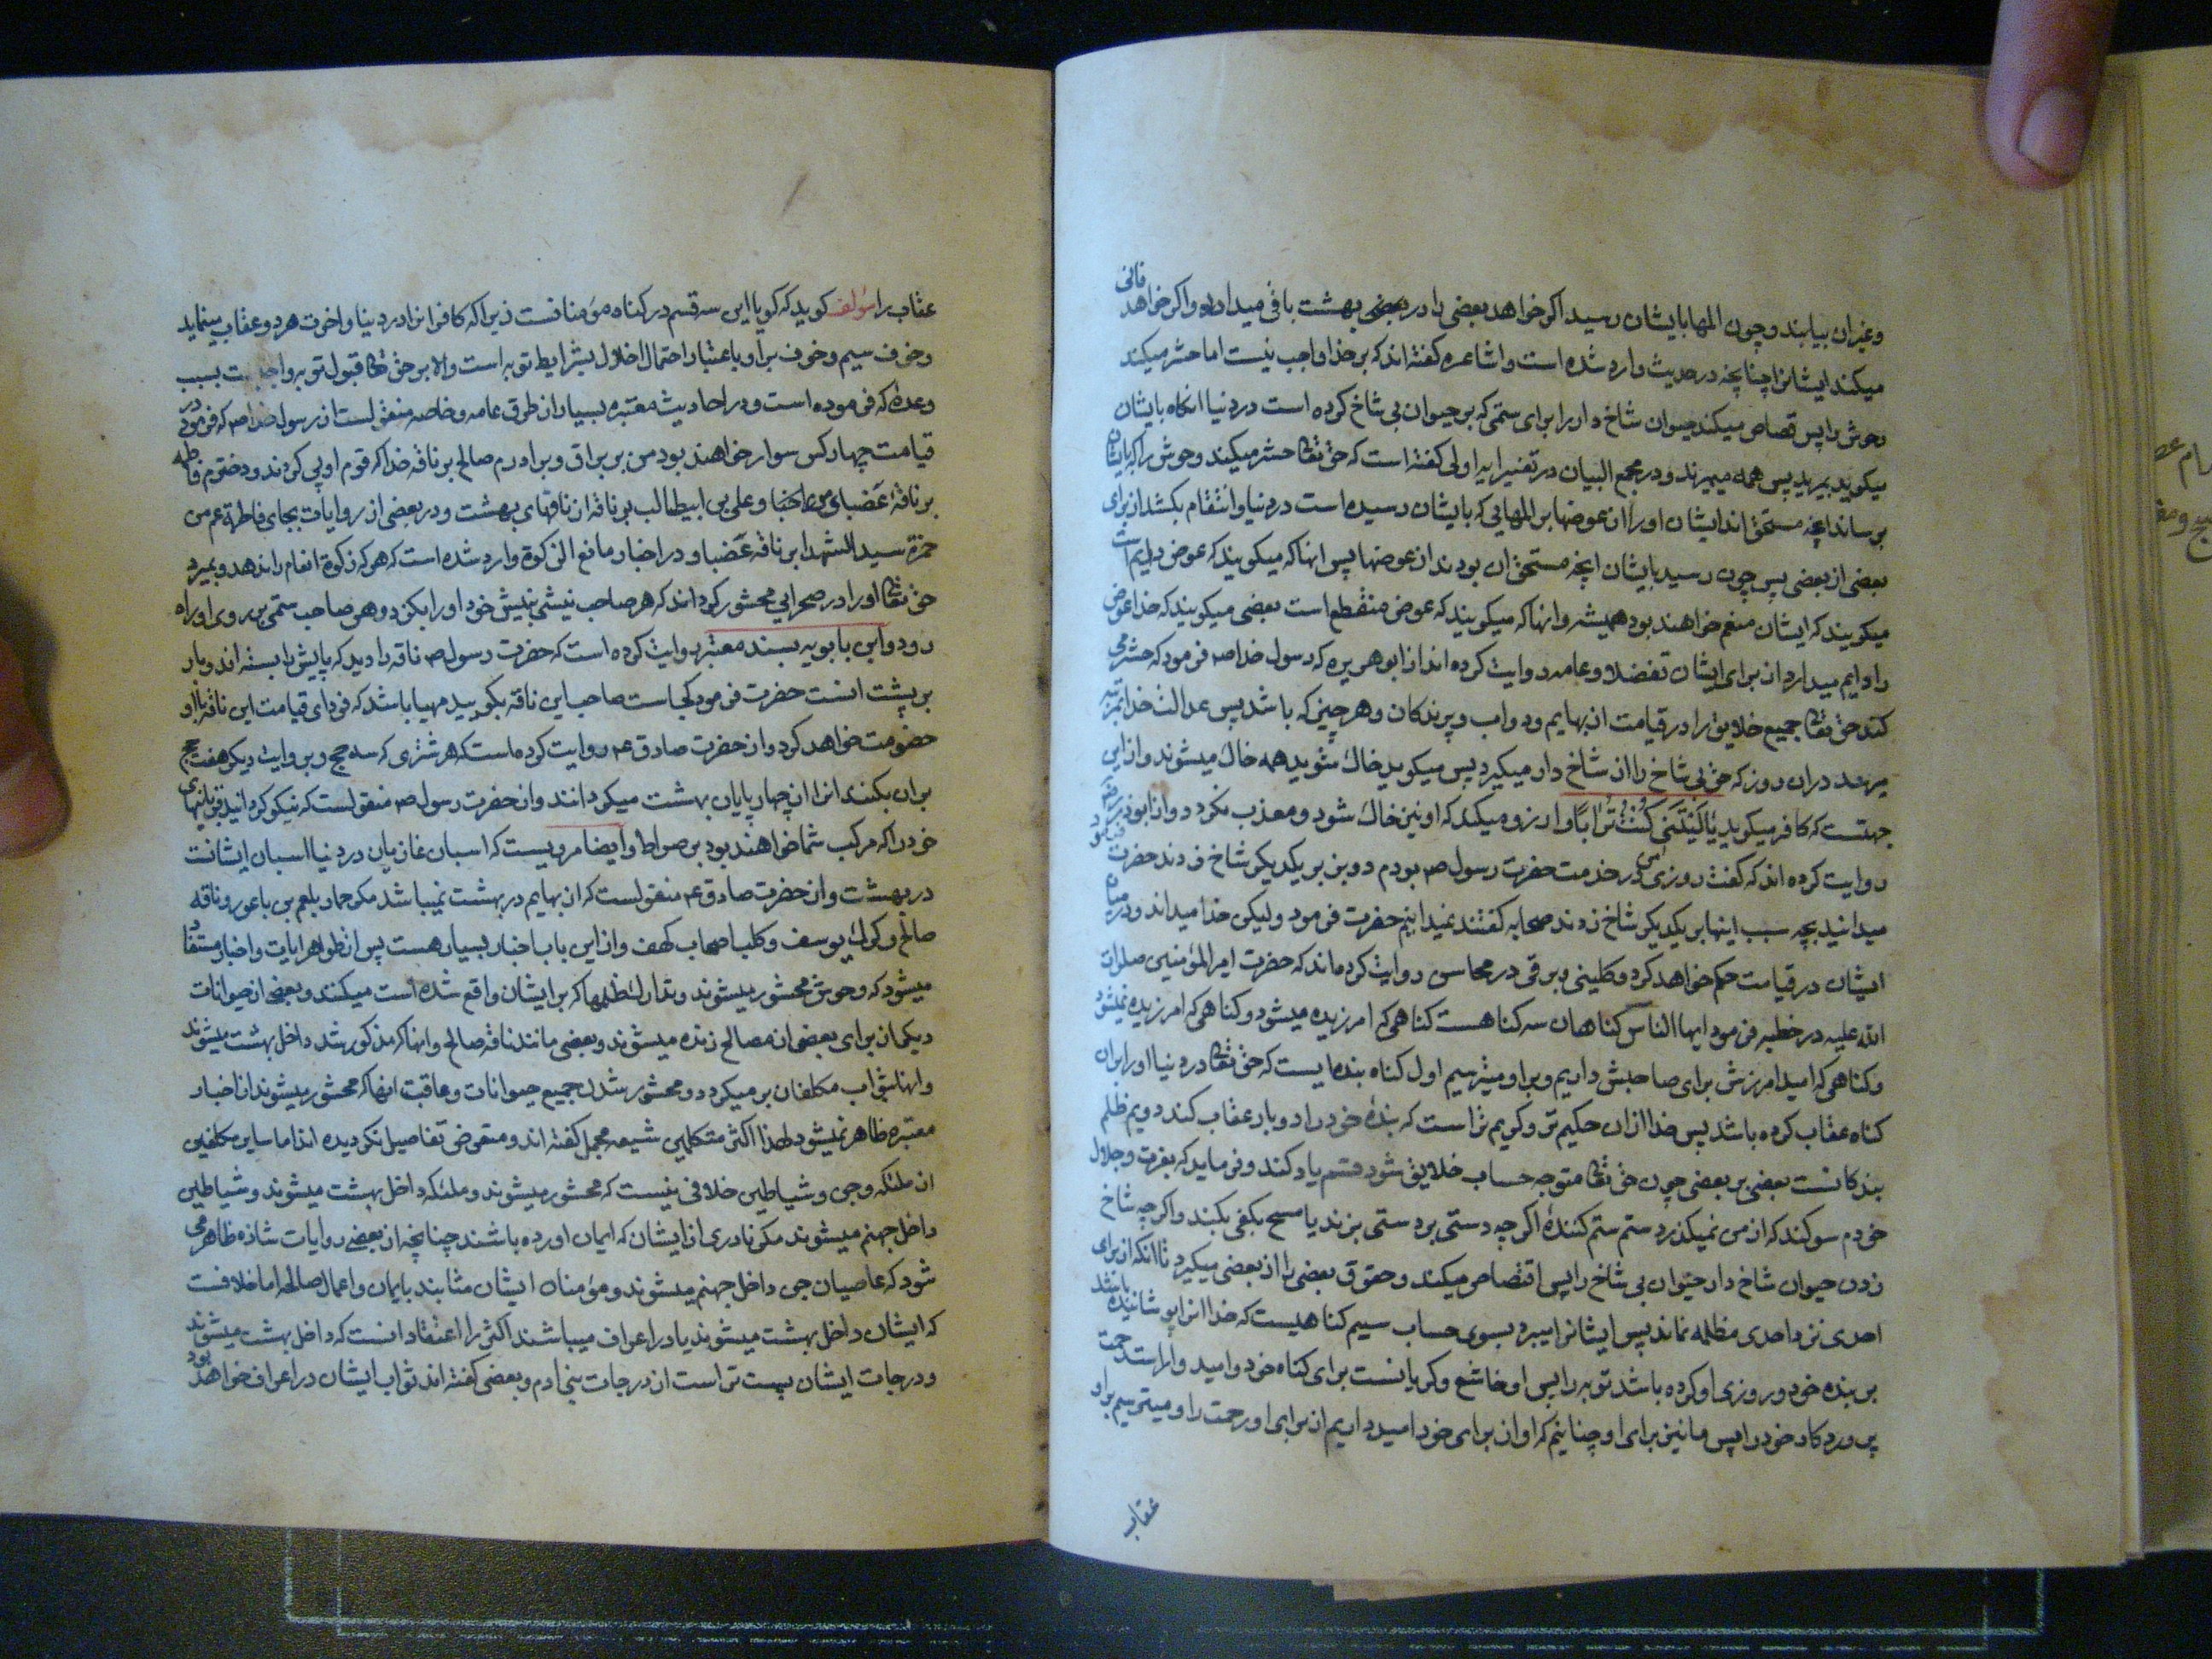 وغیر ان بیابند و چون المها بایشان رسید اکر خواهد بعضی را در بهشت باقی میدارد و اکر خواهد فانی
میکند ایشانرا چنانچه در حدیث وارد شده است و اشاعره کفته اند که بر خدا واجب نیست اما حشر میکند
وحوش را پس قصاص میکند حیوان شاخ دار را برای ستمی که بر حیوان بی شاخ کرده است در دنیا انکاه بایشان
میکوید بمیرید پس همه میمیرند و در مجمع البیان در تفسیر ایه اولی کفته است که حق تعالی حشر میکند وحوش را که بایشان
برساند انچه مستحق اند ایشان او را از عوضها بر المهایی که بایشان رسیده است در دنیا و انتقام بکشد از برای
بعضی از بعضی پس چون رسید بایشان انچه مستحق ان بودند از عوضها پس انها که میکویند که عوض دایم است
میکویند که ایشان منعم خواهند بود همیشه و انها که میکویند که عوض منقطع است بعضی میکویند که خدا عوض
را دایم میدارد ان برای ایشان تفضلا و عامه روایت کرده اند از ابو هریره که رسول خدا ص فرمود که حشر می
کند حق تعالی جمیع خلایق را در قیامت از بهایم و دواب و پرندکان و هر چیزی که باشد پس عدالت خدا بمرتبه
میرسد در ان روز که حق بی شاخ را از شاخ دار میکیرد پس میکوید خاک شوید همه خاک میشوند و از این
جهتست که کافر میکوید یَا لَیْتَنِی کُنْتُ تُرَابًا و ارزو میکند که او نیز خاک شود و معذب نکردد و از ابوذر
روایت کرده اند که کفت روزی در خدمت حضرت رسول ص بودم دو بز بر یکدیکر شاخ زدند حضرت فرمود
میدانید بچه سبب اینها بر یکدیکر شاخ زدند صحابه کفتند نمیدانیم حضرت فرمود ولیکن خدا میداند و در میان
ایشان در قیامت حکم خواهد کرد و کلینی و برقی در محاسن روایت کرده اند که حضرت امیر المؤمنین صلوات
الله علیه در خطبه فرمود ایها الناس کناهان سه کناهست کناهی که امرزیده میشود و کناهی که امرزیده نمیشود
و کناهی که امید امرزش برای صاحبش داریم و بر او میترسیم اول کناه بنده ایست که حق تعالی در دنیا او را بران
کناه عقاب کرده باشد پس خدا ازان حکیم تر و کریم تر است که بندۀ خود را دو بار عقاب کند دویم ظلم
بندکانست بعضی بر بعضی چون حق تعالی متوجه حساب خلایق شود قسم یاد کند و فرماید که بعزت و جلال
خودم سوکند که از من نمیکذرد ستم ستم کننده اکرچه دستی بر دستی بزند یا مسح بکفی بکند و اکرچه شاخ
زدن حیوان شاخ دار حیوان بی شاخ را پس اقتصاص میکند و حقوق بعضی را از بعضی میکیرد تا انکه از برای
احدی نزد احدی مظلمه نماند پس ایشانرا میبرد بسوی حساب سیم کناهیست که خدا انرا پوشانیده باشد
بر بنده خود و روزی او کرده باشد توبه را پس او خاشع و کریانست برای کناه خود و امیدوار است رحمت
پروردکار خود را پس ما نیز برای او چنانیم که او از برای خود امید داریم از برای او رحمت را و میترسیم بر او
عقاب
عقاب را مؤلف کوید که کویا این سه قسم در کناه مؤمنانست زیرا که کافرانرا در دنیا و اخرت هر دو عقاب مینماید
و خوف سیم و خوف بر او باعتبار احتمال اخلال بشرایط توبه است و الا بر حق تعالی قبول توبه واجبست بسبب
وعدۀ که فرموده است و در احادیث معتبره بسیار از طرق عامه و خاصه منقولست از رسول خدا ص که فرمود در
قیامت چهار کس سوار خواهند بود من بر براق و برادرم صالح بر ناقه خدا که قوم او پی کردند و دخترم فاطمه
بر ناقۀ عضبای من و علی بن ابیطالب بر ناقه از ناقهای بهشت و در بعضی از روایات بجای فاطمه عم من
حمزة سید الشهدا بر ناقه عضبا و در اخبار مانع الزکوة وارد شده است که هر که زکوة انعام را ندهد و بمیرد
حق تعالی او را در صحرایی محشور کرداند که هر صاحب نیشی بنیش خود او را بکزد و هر صاحب ستمی بر روی او راه
رود و ابن بابویه بسند معتبر روایت کرده است که حضرت رسول ص ناقه را دید که پایش را بسته اند و بار
بر پشت اوست حضرت فرمود کجاست صاحب این ناقه بکویید مهیا باشد که فردای قیامت این ناقه با او
خصومت خواهد کرد و از حضرت صادق ع روایت کرده است که هر شتری که سه حج و بروایت دیکر هفت حج
بران بکنند انرا از چهار پایان بهشت میکردانند و از حضرت رسول ص منقولست که نیکو کردانید قربانیهای
خود را که مرکب شما خواهند بود بر صراط و ایضا مرویست که اسبان غازیان در دنیا اسبان ایشانست
در بهشت و از حضرت صادق ع منقولست که از بهایم در بهشت نمیباشد مکر حمار بلعم بن باعور و ناقه
صالح و کرک یوسف و کلب اصحاب کهف و از این باب اخبار بسیار هست پس از ظواهر ایات و اخبار مستفاد
میشود که وحوش محشور میشوند و تدارک ظلمها که بر ایشان واقع شده است میکنند و بعضی از حیوانات
دیکر ان برای بعضی از مصالح زنده میشوند و بعضی مانند ناقه صالح و انها که مذکور شد داخل بهشت میشوند
و انها بثواب مکلفان بر میکردد و محشور شدن جمیع حیوانات و عاقبت انها که محشور میشوند از اخبار
معتبره ظاهر نمیشود لهذا اکثر متکلمین شیعه مجمل کفته اند و متعرض تفاصیل نکردیده اند اما سایر مکلفین
از ملئکه و جن و شیاطین خلافی نیست که محشور میشوند و ملئکه داخل بهشت میشوند و شیاطین
داخل جهنم میشوند مکر نادری از ایشان که ایمان اورده باشند چنانچه از بعضی روایات شاذه ظاهر می
شود که عاصیان جن داخل جهنم میشوند و مؤمنان ایشان مثابند بایمان و اعمال صالحه اما خلافست
که ایشان داخل بهشت میشوند یا در اعراف میباشند اکثر را اعتقاد انست که داخل بهشت میشوند
و درجات ایشان پست تر است از درجات بنی ادم و بعضی کفته اند ثواب ایشان در اعراف خواهد بود